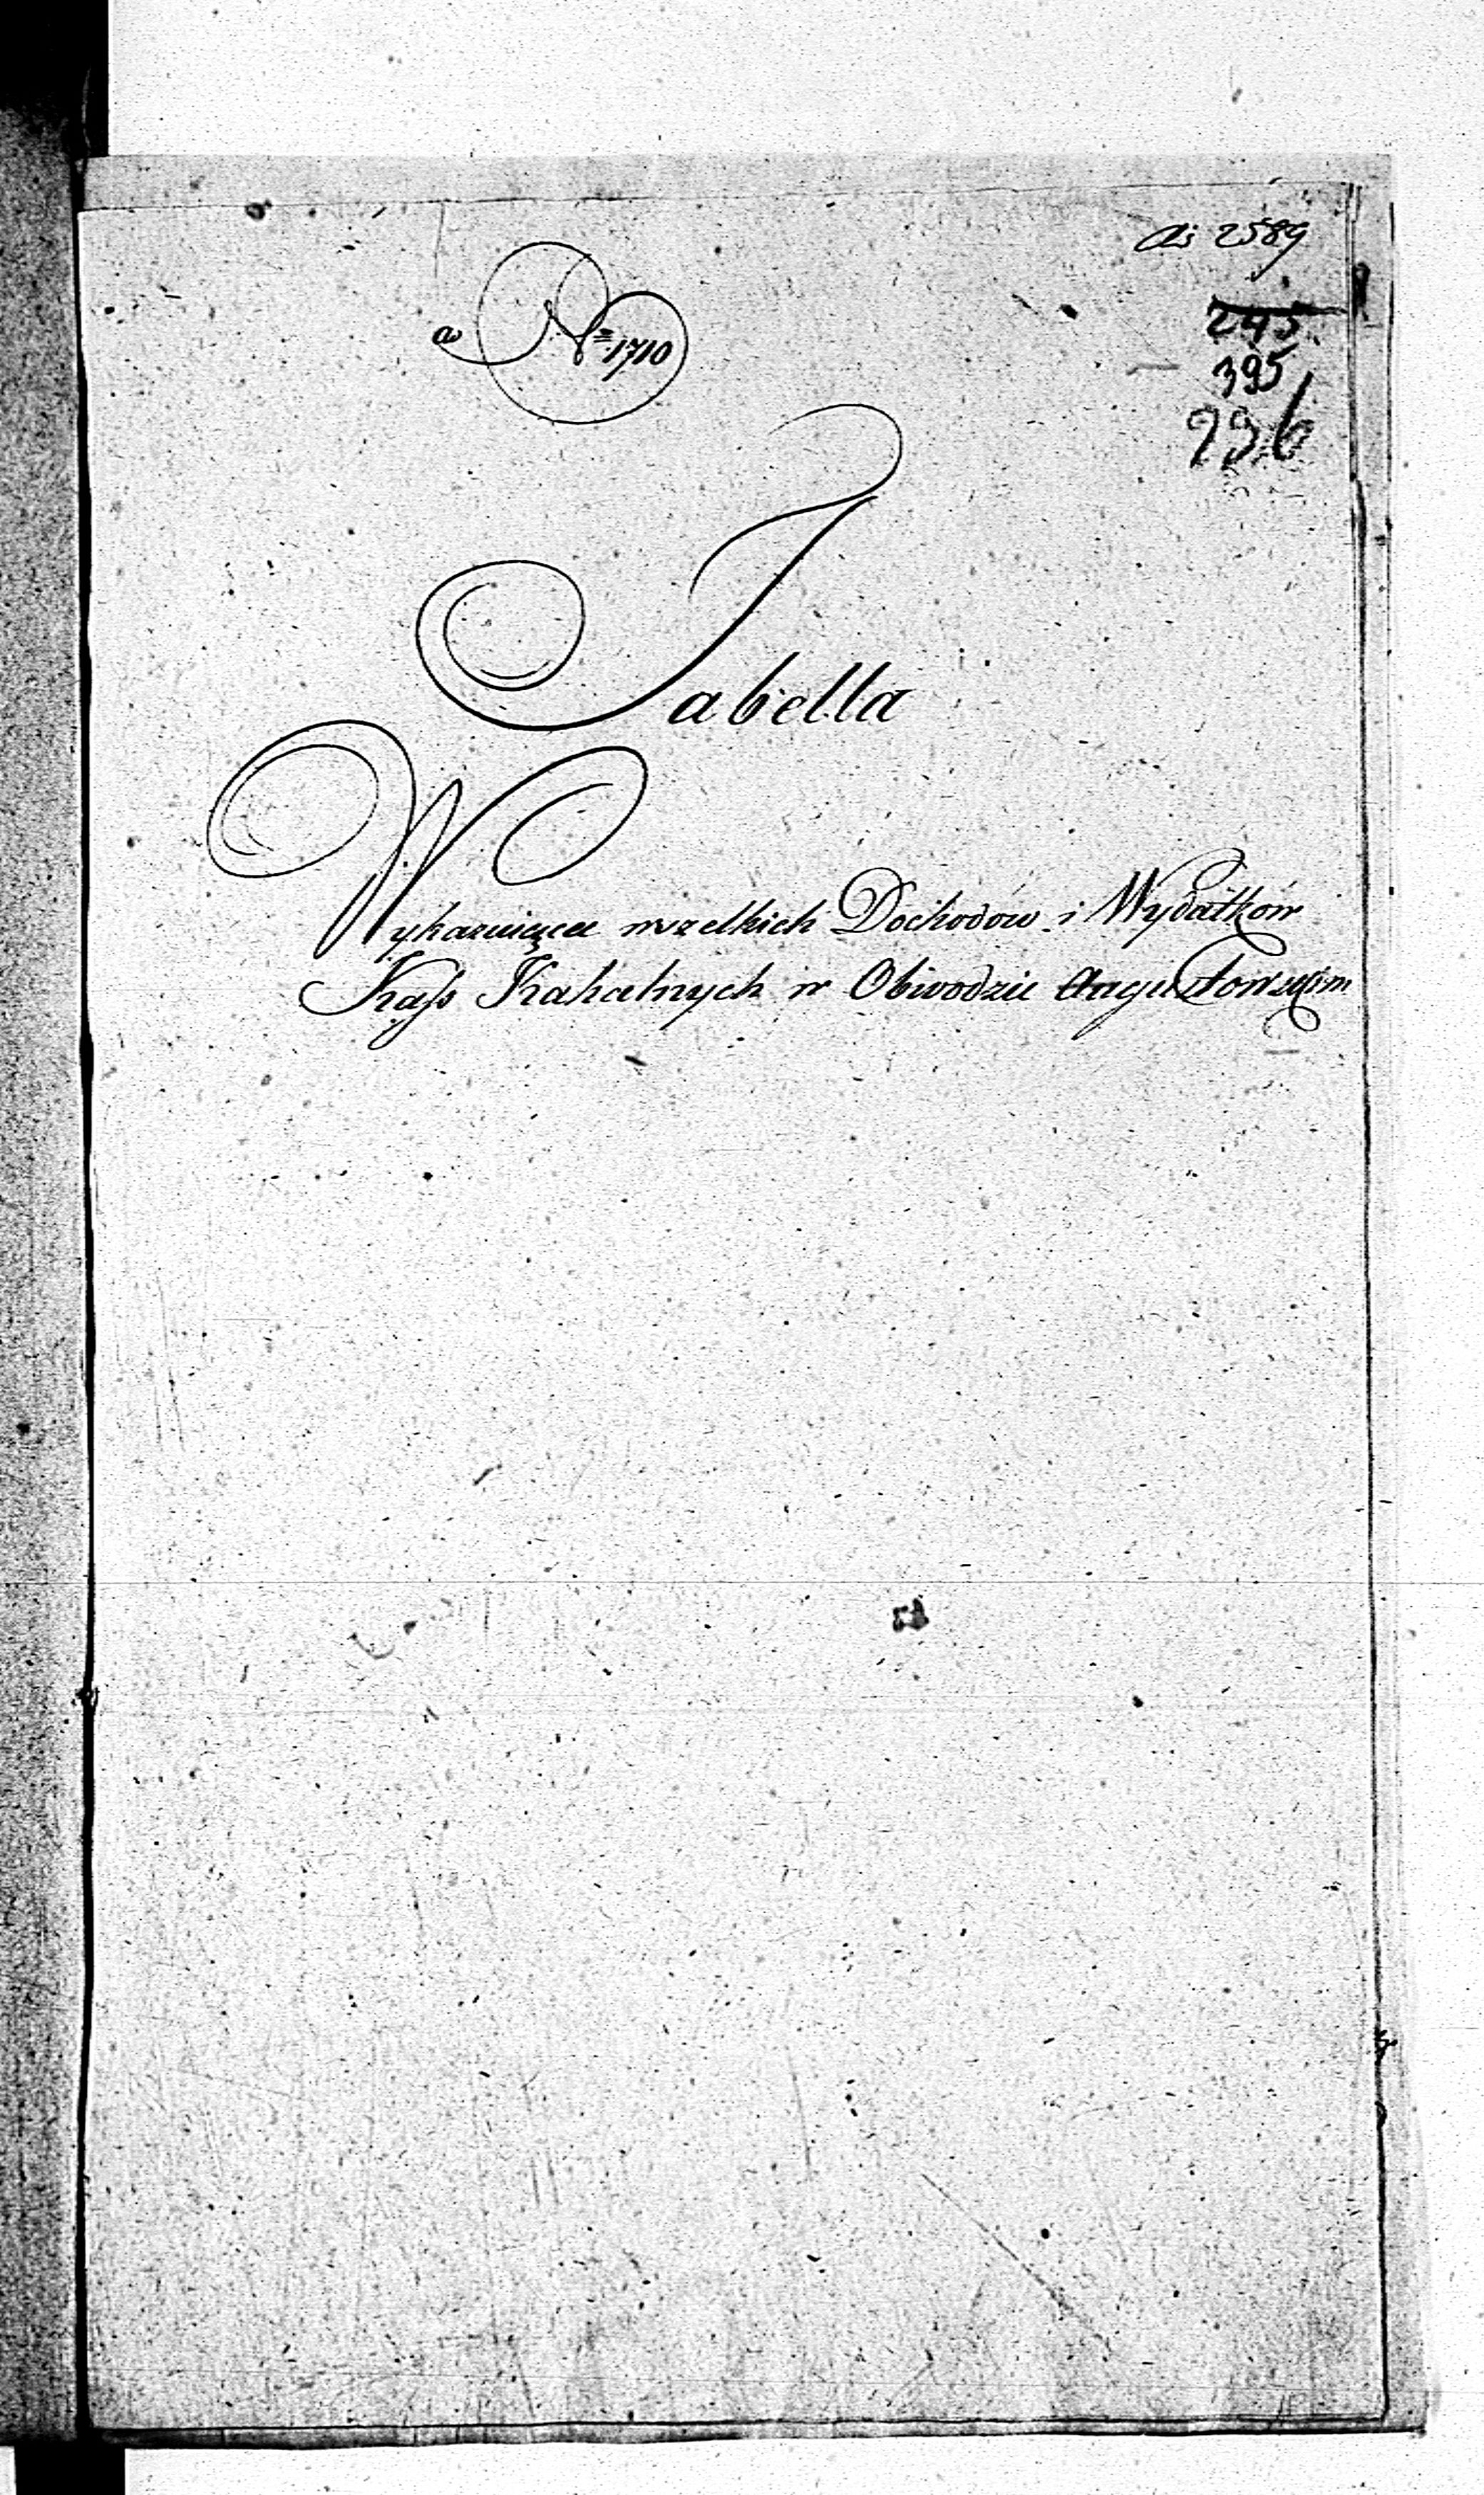 ai 2589
a № 1710
245.
395
296
Tabella
Wykazuiąca wszelkich Dochodów i Wydatków
Kass Kahalnych w Obwodzie Augustowskim